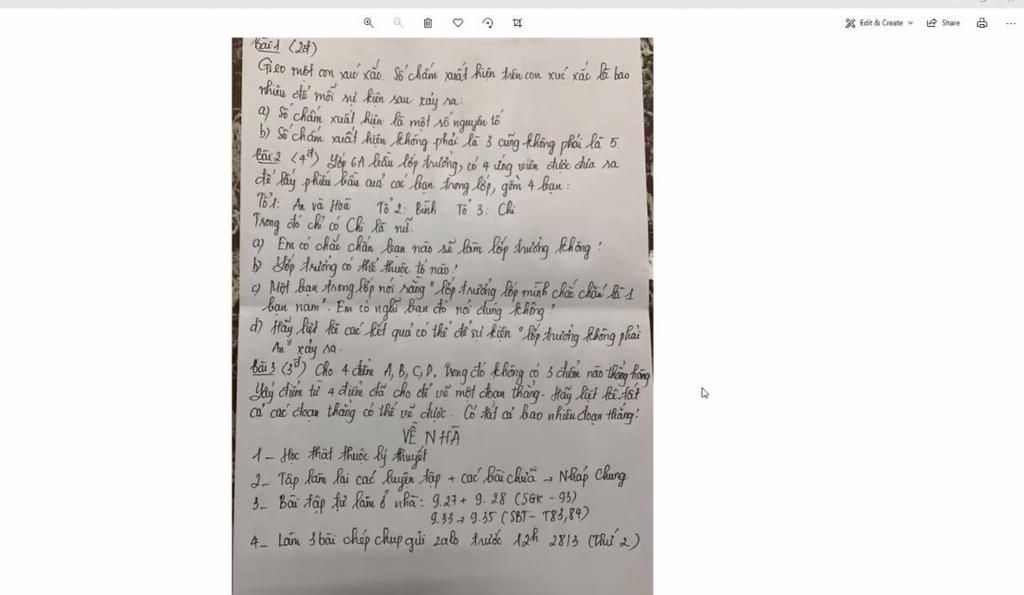 Edit & Create
Share
Bài 1 (2đ)
Gieo một con xúc xắc. Số chấm xuất hiện trên con xúc xắc là bao
nhiêu để mỗi sự kiện sau xảy ra:
a) Số chấm xuất hiện là một số nguyên tố
b) Số chấm xuất hiện không phải là 3 cũng không phải là 5.
Bài 2 (4đ) Lớp 6A bầu lớp trưởng, có 4 ứng viên được đưa ra
để lấy phiếu bầu của các bạn trong lớp, gồm 4 bạn:
Tổ 1: An và Hoà Tổ 2: Bình Tổ 3: Chi
Trong đó chỉ có Chi là nữ.
a) Em có chắc chắn bạn nào sẽ làm lớp trưởng không?
b) Lớp trưởng có thể thuộc tổ nào?
c) Một bạn trong lớp nói rằng "lớp trưởng lớp mình chắc chắn là 1
bạn nam". Em có nghĩ bạn đó nói đúng không?
d) Hãy liệt kê các kết quả có thể để sự kiện "lớp trưởng không phải
An" xảy ra.
Bài 3 (3đ) Cho 4 điểm A, B, C, D. trong đó không có 3 điểm nào thẳng hàng
Lấy điểm từ 4 điểm đã cho để vẽ một đoạn thẳng. Hãy liệt kê tất
cả các đoạn thẳng có thể vẽ được. Có tất cả bao nhiêu đoạn thẳng?
VỀ NHÀ
1 - Học thật thuộc lý thuyết
2 - Tập làm lại các luyện tập + các bài chữa → Nháp Chung
3 - Bài tập tự làm ở nhà: 9.27 + 9.28 (SGK - 93)
9.33 → 9.35 (SBT - T83,84)
4 - Làm 3 bài chép chụp gửi zalo trước 12h 28/3 (Thứ 2)